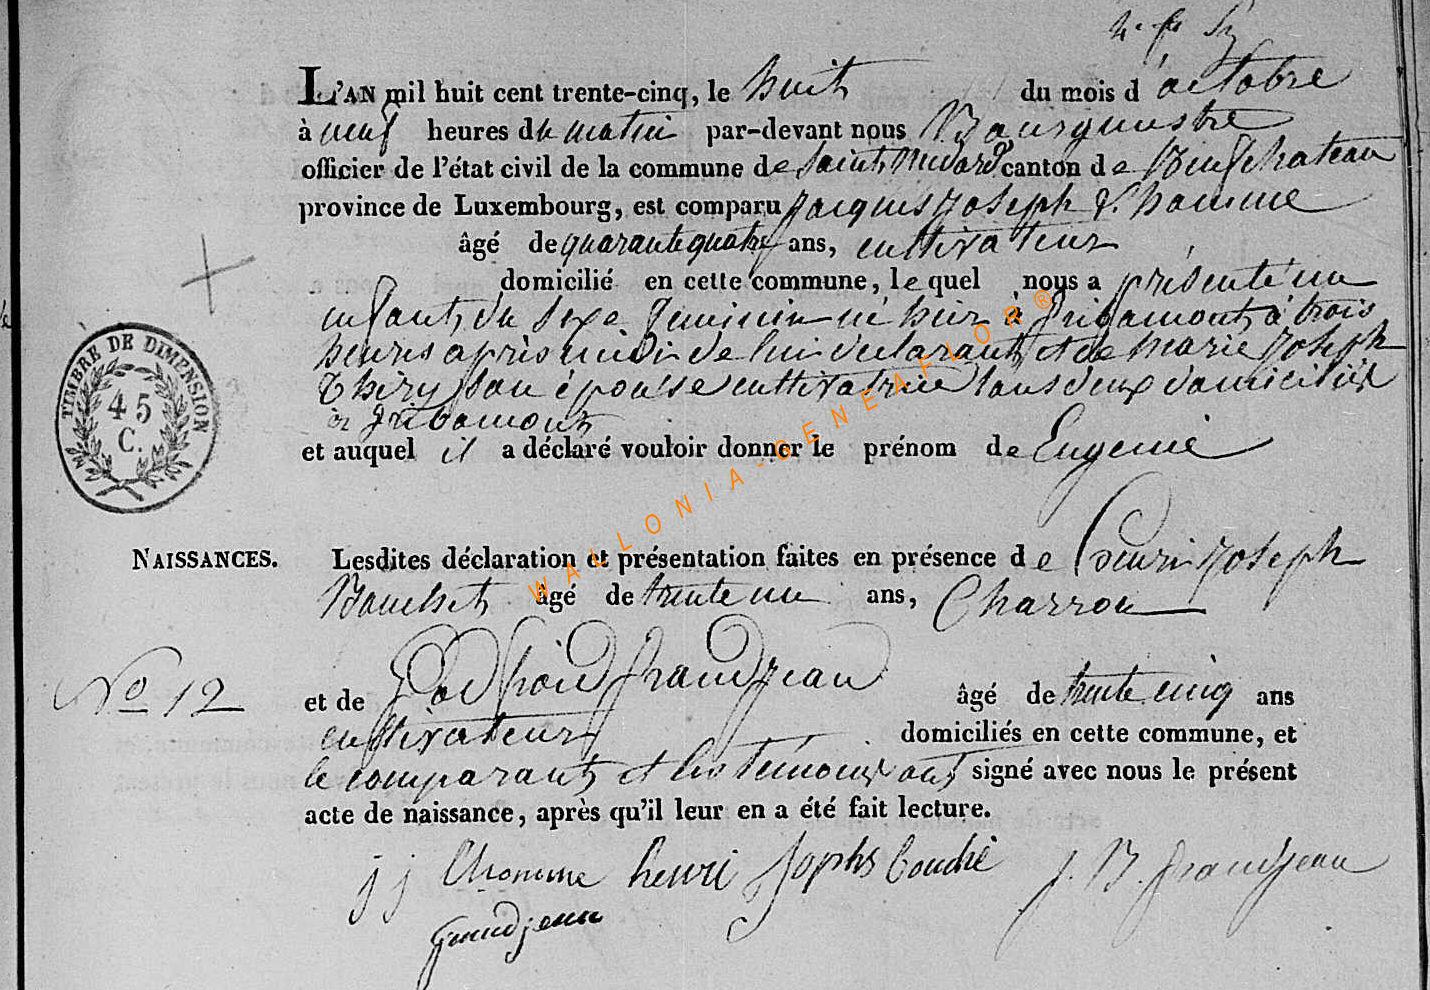 L'AN mil huit cent trente-cinq, le huit du mois d'octobre
à neuf heures du matin par-devant nous Bourgmestre
officier de l'état civil de la commune de Saint Médard canton de Neufchateau
province de Luxembourg, est comparu Jacques Joseph Lhomme
âgé de quarante quatre ans, cultivateur
domicilié en cette commune, lequel nous a présenté un
enfant du sexe feminin né hier à Gribomont à trois
heures après midi de lui declarant et de Marie Joseph
Thiry son épouse cultivatrice tous deux domiciliés
à Gribomont
et auquel il a déclaré vouloir donner le prénom de Eugenie
NAISSANCES.
Lesdites déclaration et présentation faites en présence de Henri Joseph
Bouchet âgé de trente un ans, Charron
No 12
et de Grandjean âgé de trente cinq ans
cultivateur domiciliés en cette commune, et
le comparant et les témoins ont signé avec nous le présent
acte de naissance, après qu'il leur en a été fait lecture.
j j Lhomme henri Josephs bouché J. B. Grandjean
Grandjean
TIMBRE DE DIMENSION
45
C.
WALLONIA-GENEAFLOR®